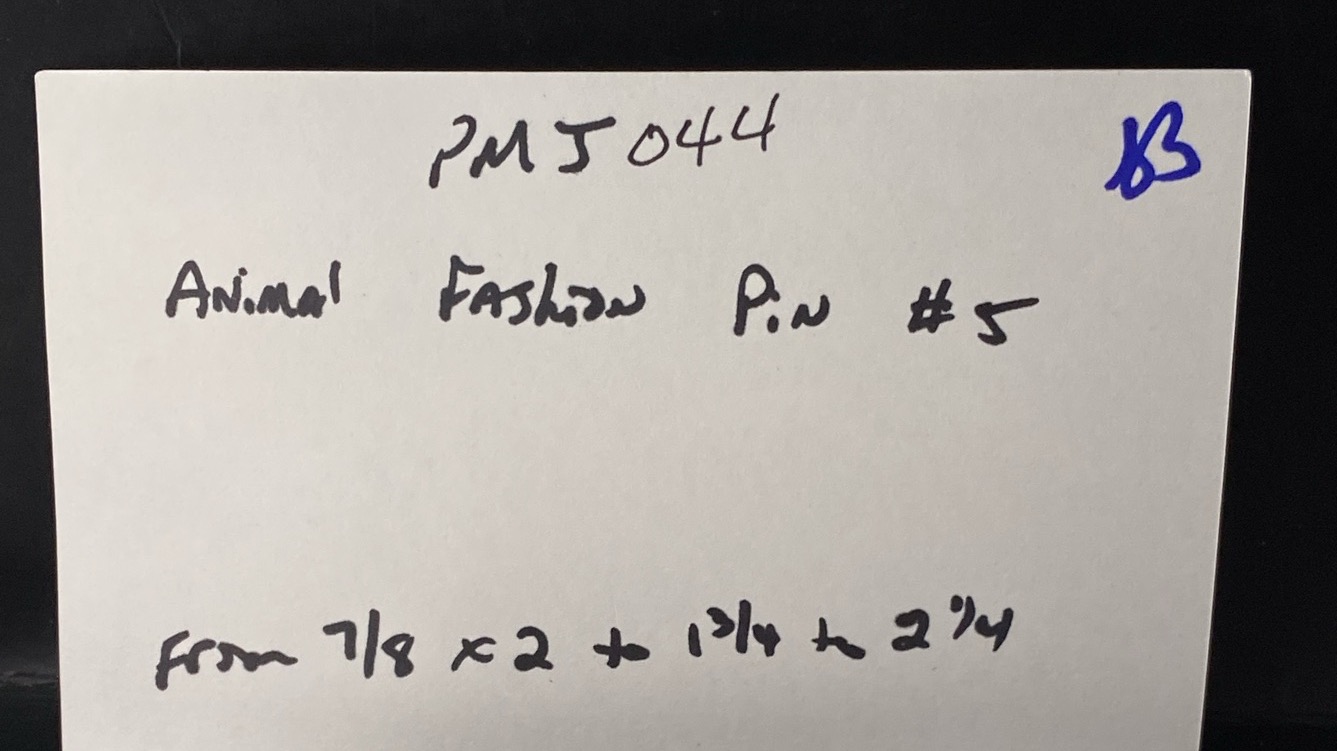 PMJ 044
Animal Fashion Pin #5
From 7/8 x 2 to 1 3/4 to 2 1/4